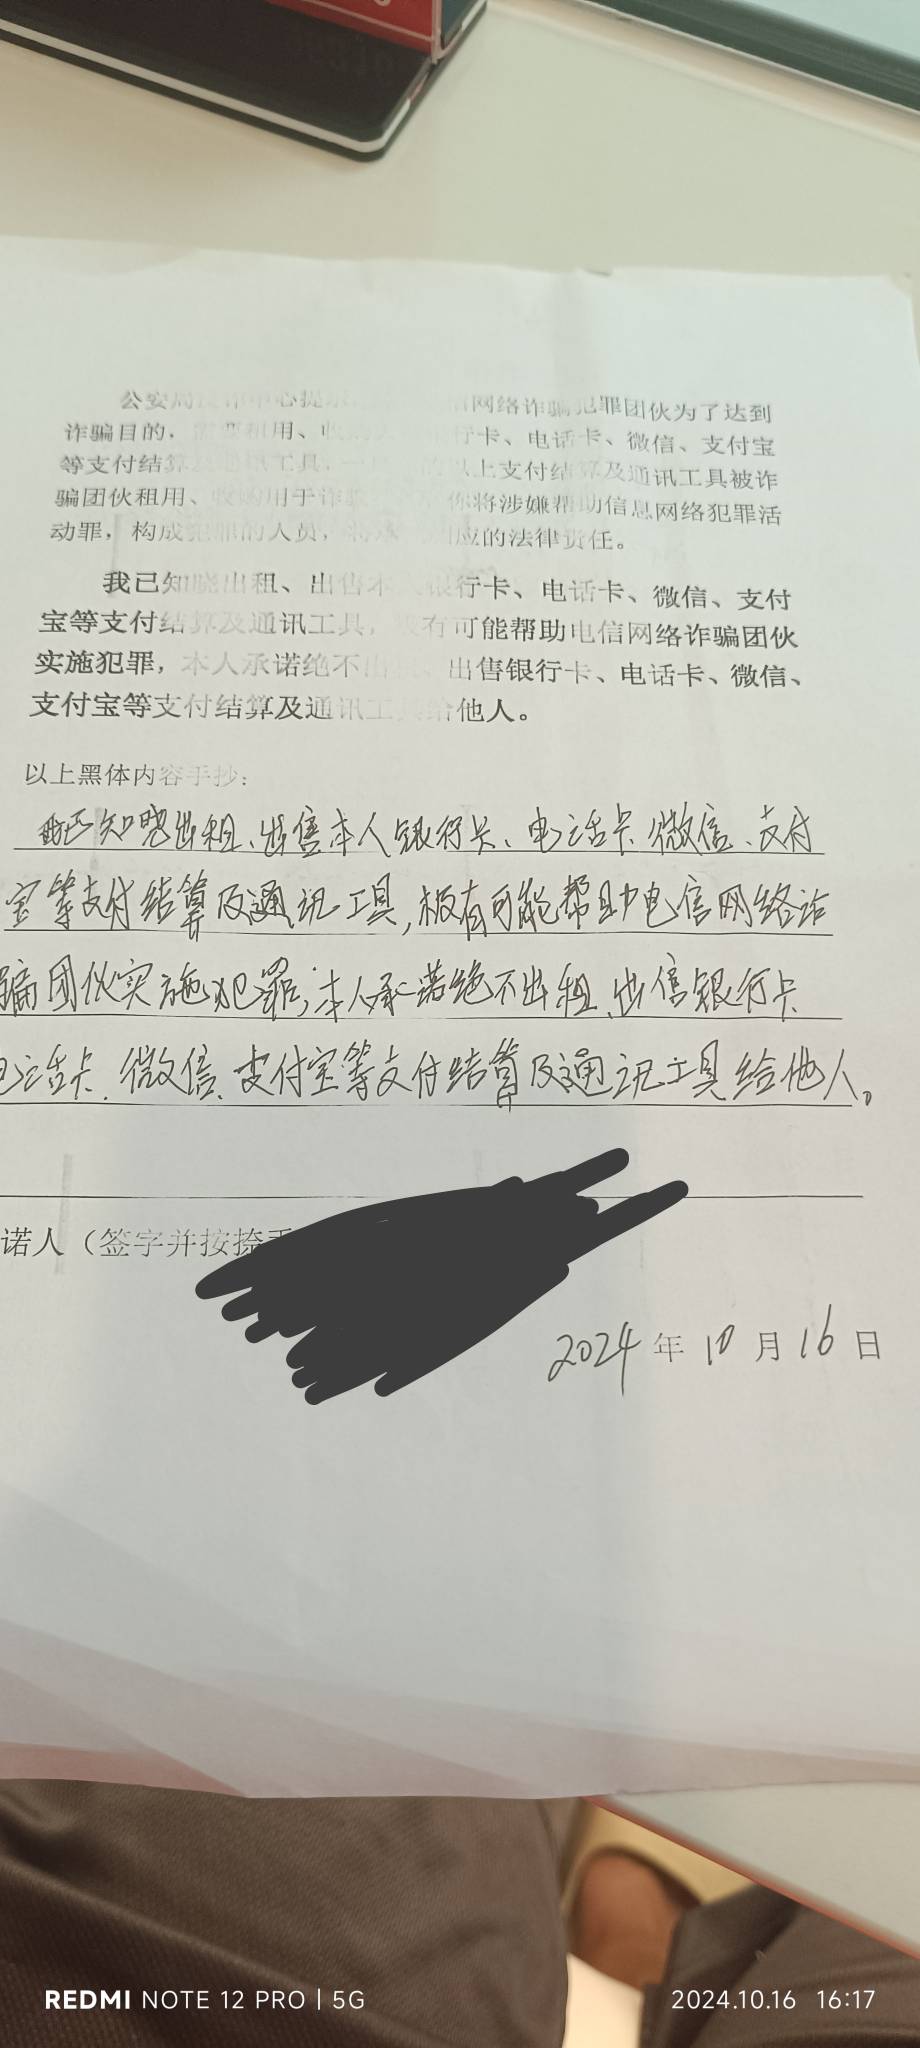 公安局反诈中心提示 网络诈骗犯罪团伙为了达到
诈骗目的，需要租用、收 行卡、电话卡、微信、支付宝
等支付结算及通讯工具，一 以上支付结算及通讯工具被诈
骗团伙租用、收购用于诈骗 你将涉嫌帮助信息网络犯罪活
动罪，构成犯罪的人员， 相应的法律责任。
我已知晓出租、出售本人银行卡、电话卡、微信、支付
宝等支付结算及通讯工具，极有可能帮助电信网络诈骗团伙
实施犯罪，本人承诺绝不出租、出售银行卡、电话卡、微信、
支付宝等支付结算及通讯工具给他人。
以上黑体内容手抄：
我已知晓出租、出售本人银行卡、电话卡、微信、支付
宝等支付结算及通讯工具，极有可能帮助电信网络诈
骗团伙实施犯罪，本人承诺绝不出租、出售银行卡
电话卡、微信、支付宝等支付结算及通讯工具给他人。
诺人（签字并按捺手
2024年10月16日
REDMI NOTE 12 PRO | 5G
2024.10.16 16:17